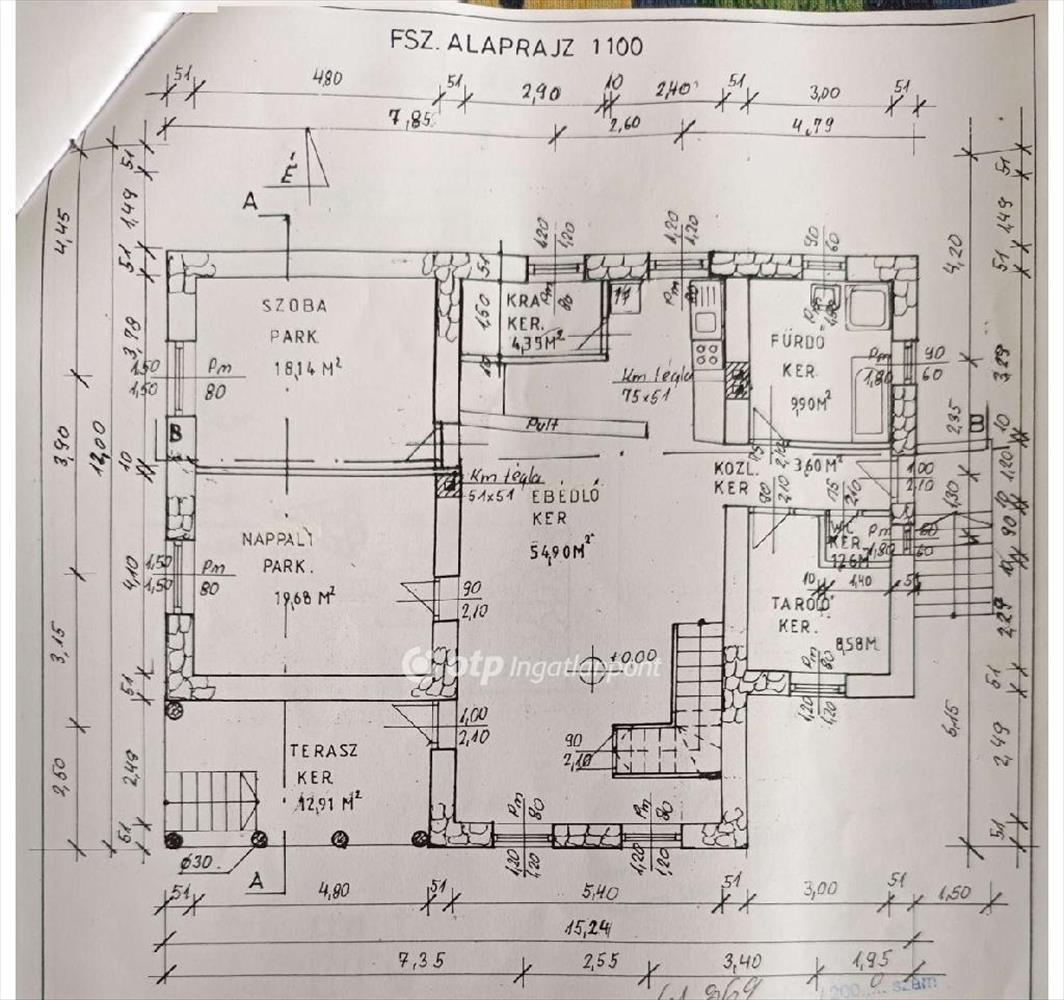 FSZ. ALAPRAJZ 1100
51 4,80 51 2,90 10 2,40 51 3,00 51
7,85 2,60 4,79
É
A
51 1,49 51 3,78 10 4,10 51 2,49 51
4,45 3,90 3,15 2,50
12,00
1,20 1,20
1,20 1,20
90 60
51
1,50
10
SZOBA
PARK
18,14 M²
KRA
KER.
4,39 M²
Pm 80
Pm 80
FÜRDŐ
KER.
9,90 M²
Pm 1,80
90
60
1,50
1,50
Pm
80
Km tégla
75x51
Pult
B
B
Km tégla
51x51
ÉBÉDLŐ
KER
54,90 M²
KÖZL.
KER
3,60 M²
75 2,10
1,00
2,10
90 2,10
75 2,10
NAPPALI
PARK.
19,68 M²
1,50
1,50
Pm
80
90
2,10
WC
KER.
Pm
1,80
60
60
10 1,40 51
TAROLÓ
KER.
8,58M
Pm 80
1,20 1,20
otp Ingatlanpont
±0,00
1,00
2,10
90
2,10
TERASZ
KER
12,91 M²
Ø30
A
Pm 80
Pm 80
1,20 1,20
1,20 1,20
4,20 2,35 1,30 6,15
51 1,49 51 3,29 10 1,20 10 90 10 2,29 51 2,49 51
51 4,80 51 5,40 51 3,00 51 1,50
15,24
7,35 2,55 3,40 1,95
szám